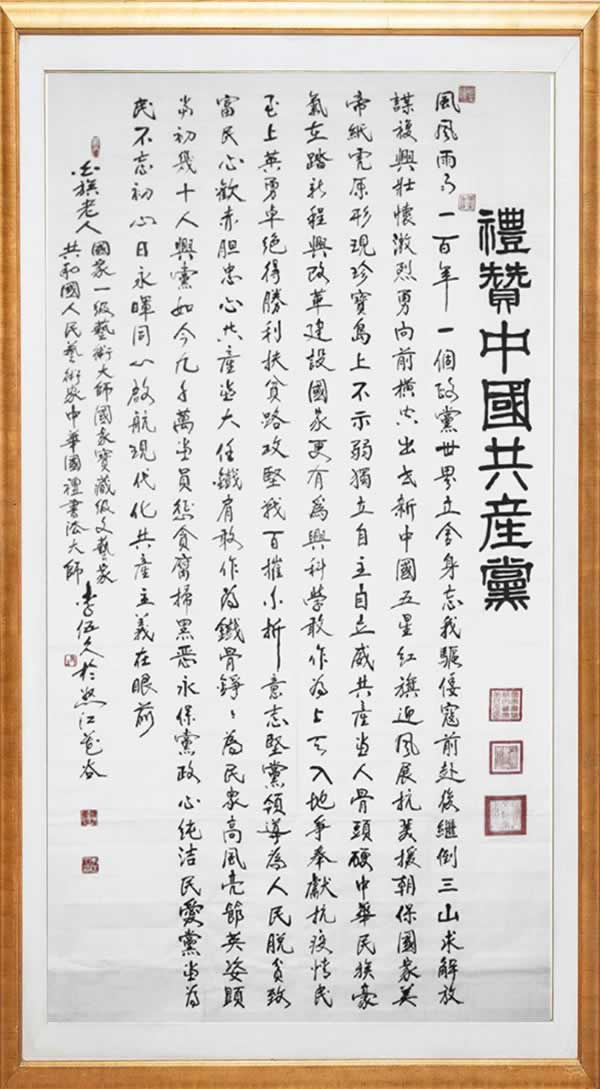 禮贊中國共産黨
風風雨雨一百年一個政黨世界立舍身忘我驅倭寇前赴後繼倒三山求解放
謀複興壯懷激烈勇向前橫空出世新中國五星紅旗迎風展抗美援朝保國家美
帝紙虎原形現珍寶島上不示弱獨立自主自立威共產党人骨頭硬中華民族豪
氣在踏新程興改革建設國家更有為興科學敢作為上天入地爭奉獻抗疫情民
至上英勇卓絕得勝利扶貧路攻堅戰百摧不折意志堅黨領導為人民脫貧致
富民心歡赤胆忠心共產党大任鐵肩敢作為鐵骨錚々為民衆高風亮節英姿顯
當初幾十人興黨如今九千萬党員懲貪腐掃黑惡永保黨政心純洁民愛黨党為
民不忘初心日永暉同心啟航現代化共產主義在眼前
老人
國家一級藝術大師國家寶藏級文藝家
共和國人民藝術家中華國禮書法大師
李伍久於怒江谷